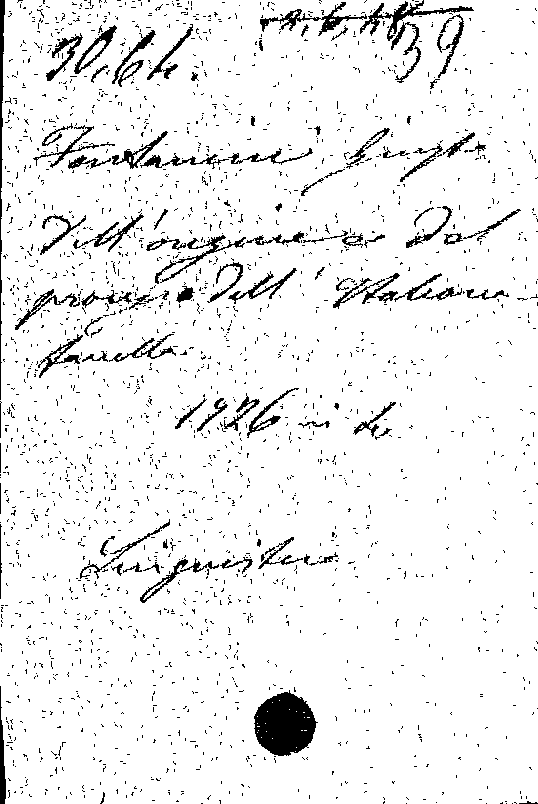 39
30,6h.
Fontanini Giusto
Dell'origine e del
processo dell' Italiana
favella
1926 in
Linguistica